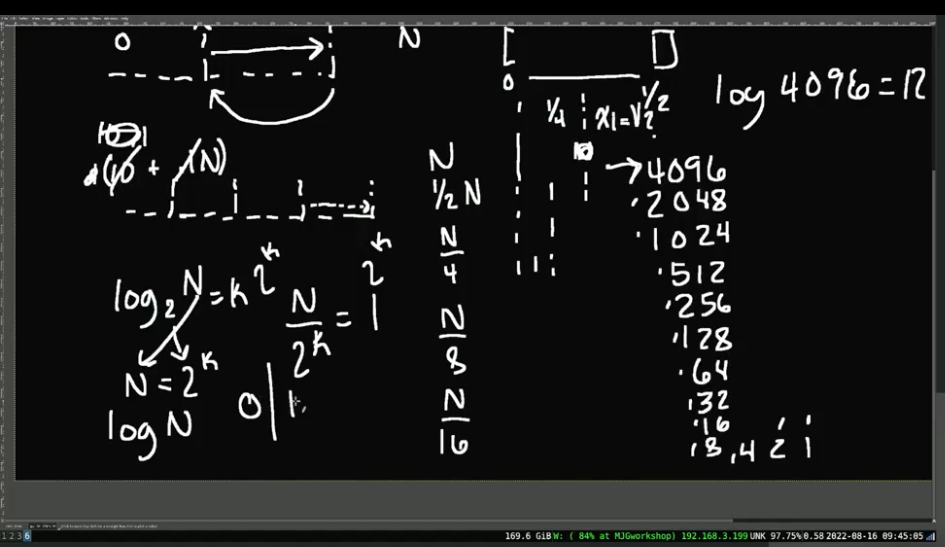 0
N
[ ]
0
log 4096 = 12
1/4
x1 = 1/2
+ (N)
N
1/2 N
N/4
N/8
N/16
→ 4096
2048
1024
512
256
128
64
32
16
8, 4 2 1
log2 N = k
2^k
N/2^k = 1
2^k
N = 2^k
log N
0 | 1
1 2 3 4 5 6
169.6 GiB W: ( 84% at MJGworkshop) 192.168.3.199 UNK 97.75% 0.58 2022-08-16 09:45:05